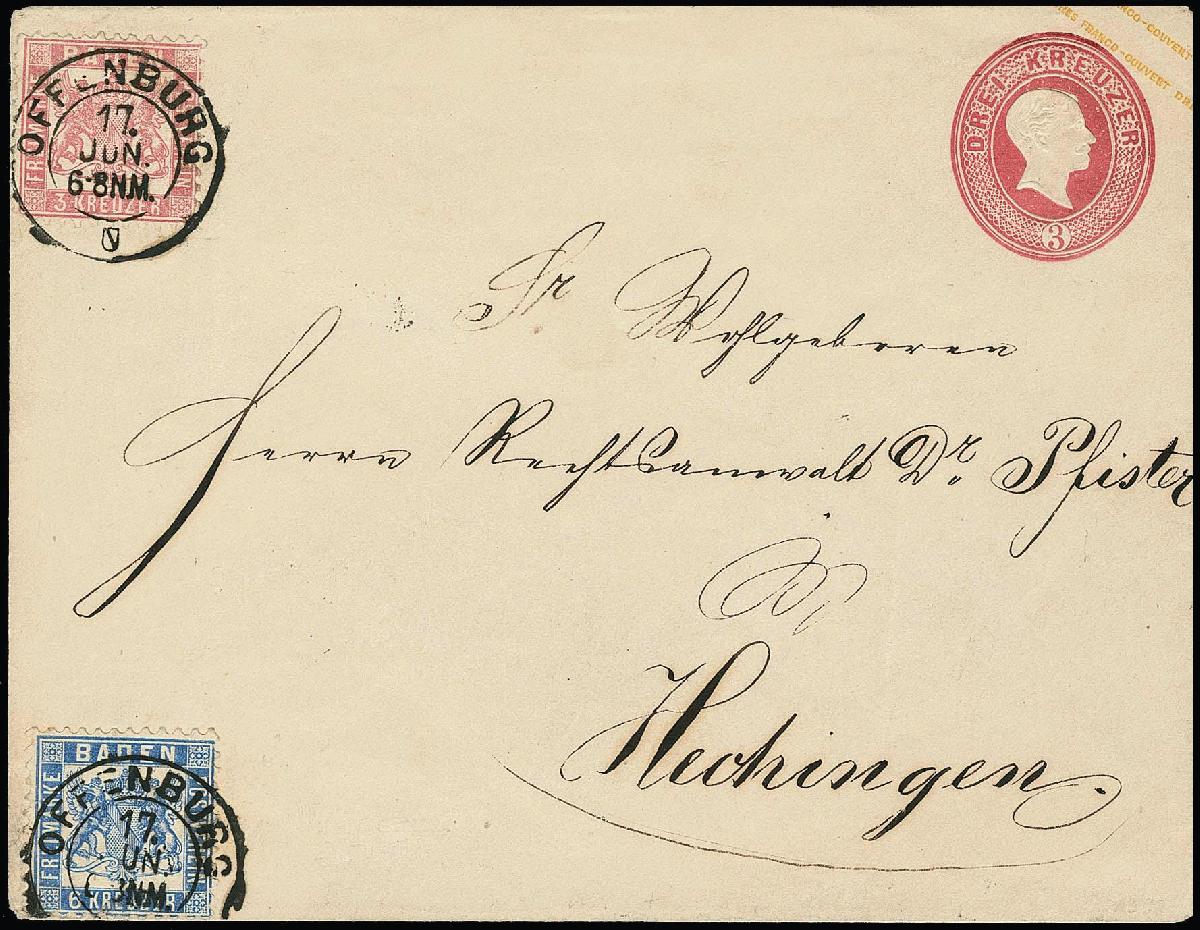 BADEN
FREIMARKE
3 KREUZER
OFFENBURG
17.
JUN.
6-8NM.
DREI KREUZER
3
NCO-COUVERT
RES FRANCO-COUVERT DR
Sr Wohlgeboren
Herrn Rechtsanwalt Dr. Pfister
Hechingen.
BADEN
FREIMARKE
6 KREUZER
OFFENBURG
17.
JUN.
8NM.